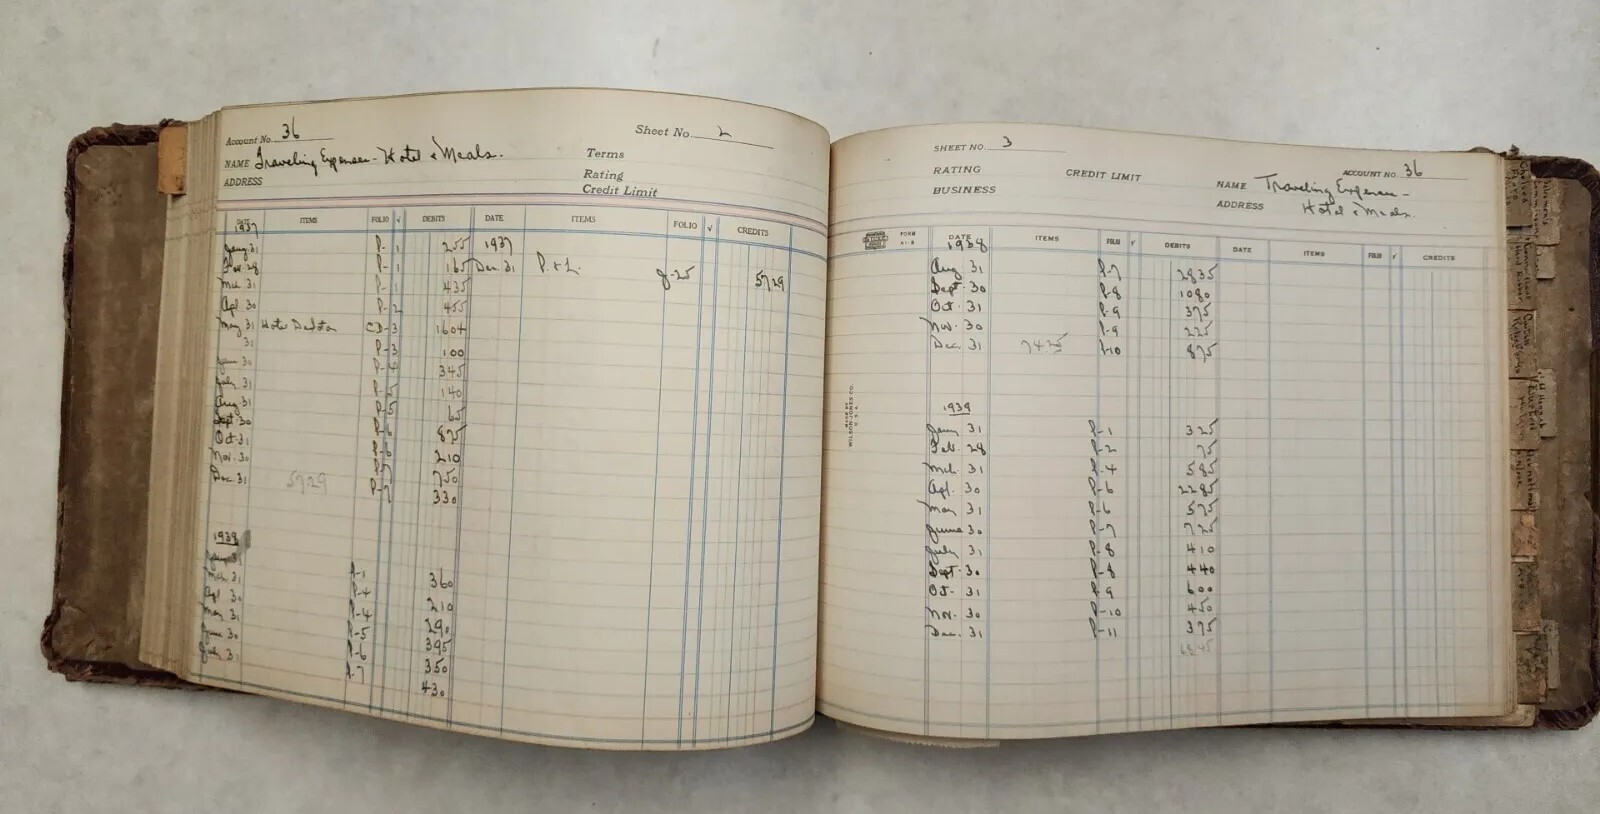 Account No. 36
Sheet No. 2
NAME Traveling Expenses - Hotel & Meals.
Terms
ADDRESS
Rating
Credit Limit
DATE ITEMS FOLIO √ DEBITS DATE ITEMS FOLIO √ CREDITS
1937
Jany 31 P- 1 255 1937
Feb. 28 P- 1 165 Dec. 31 P. & L. J-25 5729
Mch 31 P- 1 435
Apl 30 P- 2 455
May 31 Hotel CD-3 1604
31 P-3 100
June 30 P-4 345
July 31 P-5 140
Aug 31 P-5 65
Sept 30 875
Oct 31 210
Nov. 30 750
Dec. 31 5729 330
1938
360
Mch 31 210
Apl 30 P-4 290
May 31 P-5 395
June 30 P-6 350
July 31 P-7 430
SHEET NO. 3
ACCOUNT NO. 36
RATING CREDIT LIMIT
NAME Traveling Expenses -
BUSINESS
ADDRESS Hotel & Meals.
FORM
DATE ITEMS FOLIO √ DEBITS DATE ITEMS FOLIO √ CREDITS
1938
Aug 31 P-7 2835
Sept 30 P-8 1080
Oct. 31 P-9 375
Nov. 30 P-9 225
Dec. 31 7425 P-10 875
MADE BY
WILSON-JONES CO.
U.S.A.
1939
Jany 31 P-1 325
Feb. 28 P-2 75
Mch. 31 P-4 585
Apl. 30 P-6 2285
May 31 P-6 575
June 30 P-7 725
July 31 P-8 410
Sept. 30 P-8 440
Oct. 31 P-9 600
Nov. 30 P-10 450
Dec. 31 P-11 375